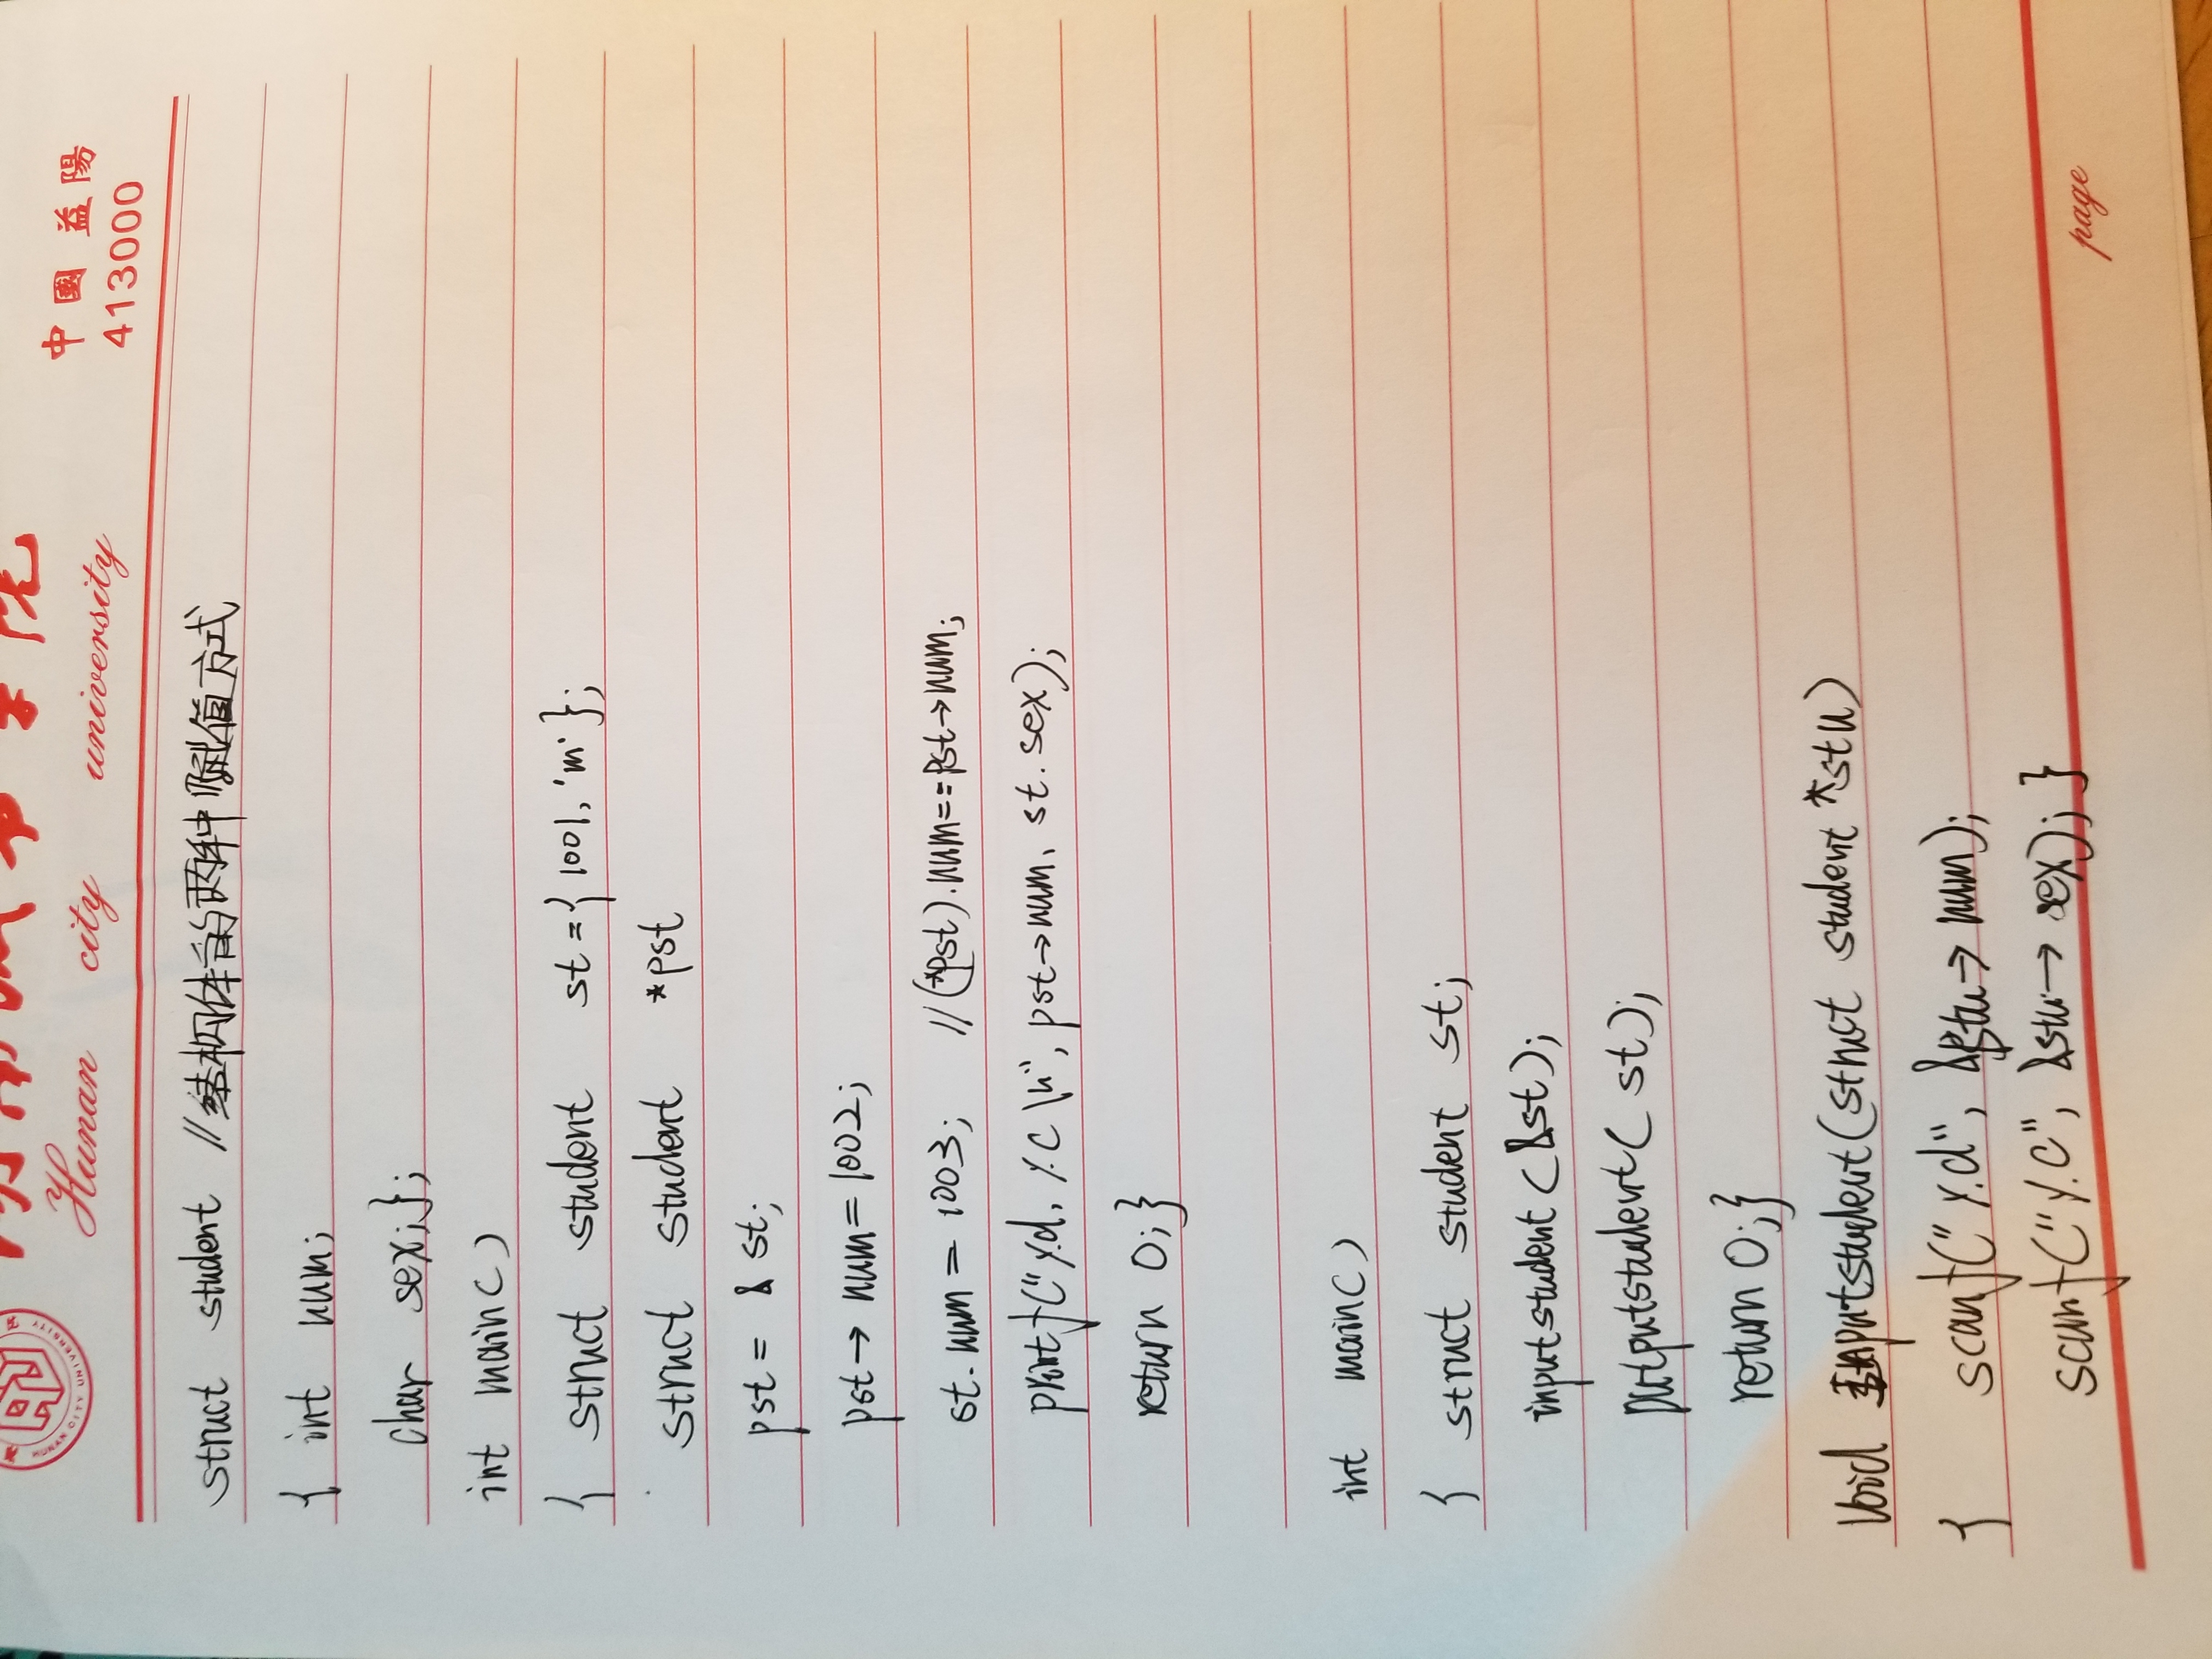 HUNAN CITY UNIVERSITY
湖南城市学院
Hunan city university
中國 益陽
413000
struct student //结构体的两种赋值方式
{ int num;
char sex;};
int main()
{ struct student st={1001,'m'};
struct student *pst
pst= & st;
pst→ num=1002;
st.num = 1003; //(*pst).num==pst→num;
printf("%d, %c \n", pst→num, st.sex);
return 0;}
int main()
{ struct student st;
inputstudent (&st);
outputstudent( st);
return 0;}
void Inputstudent(struct student *stu)
{ scanf("%d", &stu→ num);
scanf("%c", &stu→ sex); }
page